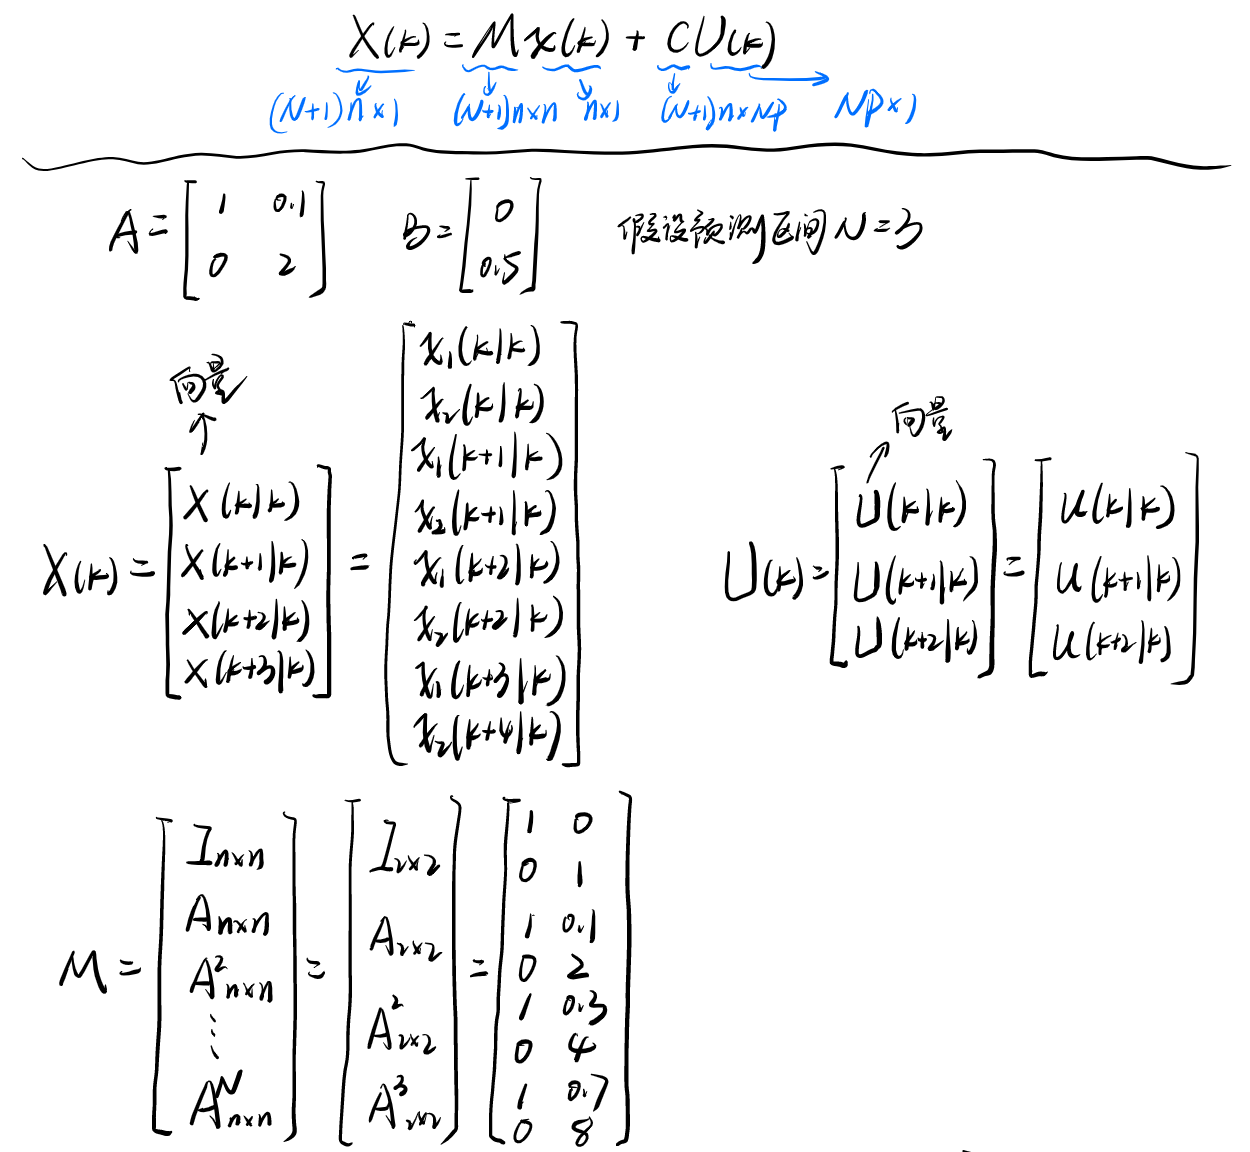 X(k) = M x(k) + C U(k)
(N+1)n×1 (N+1)n×n n×1 (N+1)n×Np Np×1
A = [1 0.1; 0 2] B = [0; 0.5] 假设预测区间 N=3
向量
向量
X(k) = [X(k|k); X(k+1|k); X(k+2|k); X(k+3|k)] = [x₁(k|k); x₂(k|k); x₁(k+1|k); x₂(k+1|k); x₁(k+2|k); x₂(k+2|k); x₁(k+3|k); x₂(k+4|k)]
U(k) = [U(k|k); U(k+1|k); U(k+2|k)] = [u(k|k); u(k+1|k); u(k+2|k)]
M = [Iₙₓₙ; Aₙₓₙ; A²ₙₓₙ; ⋮; Aᴺₙₓₙ] = [I₂ₓ₂; A₂ₓ₂; A²₂ₓ₂; A³₂ₓ₂] = [1 0; 0 1; 1 0.1; 0 2; 1 0.3; 0 4; 1 0.7; 0 8]